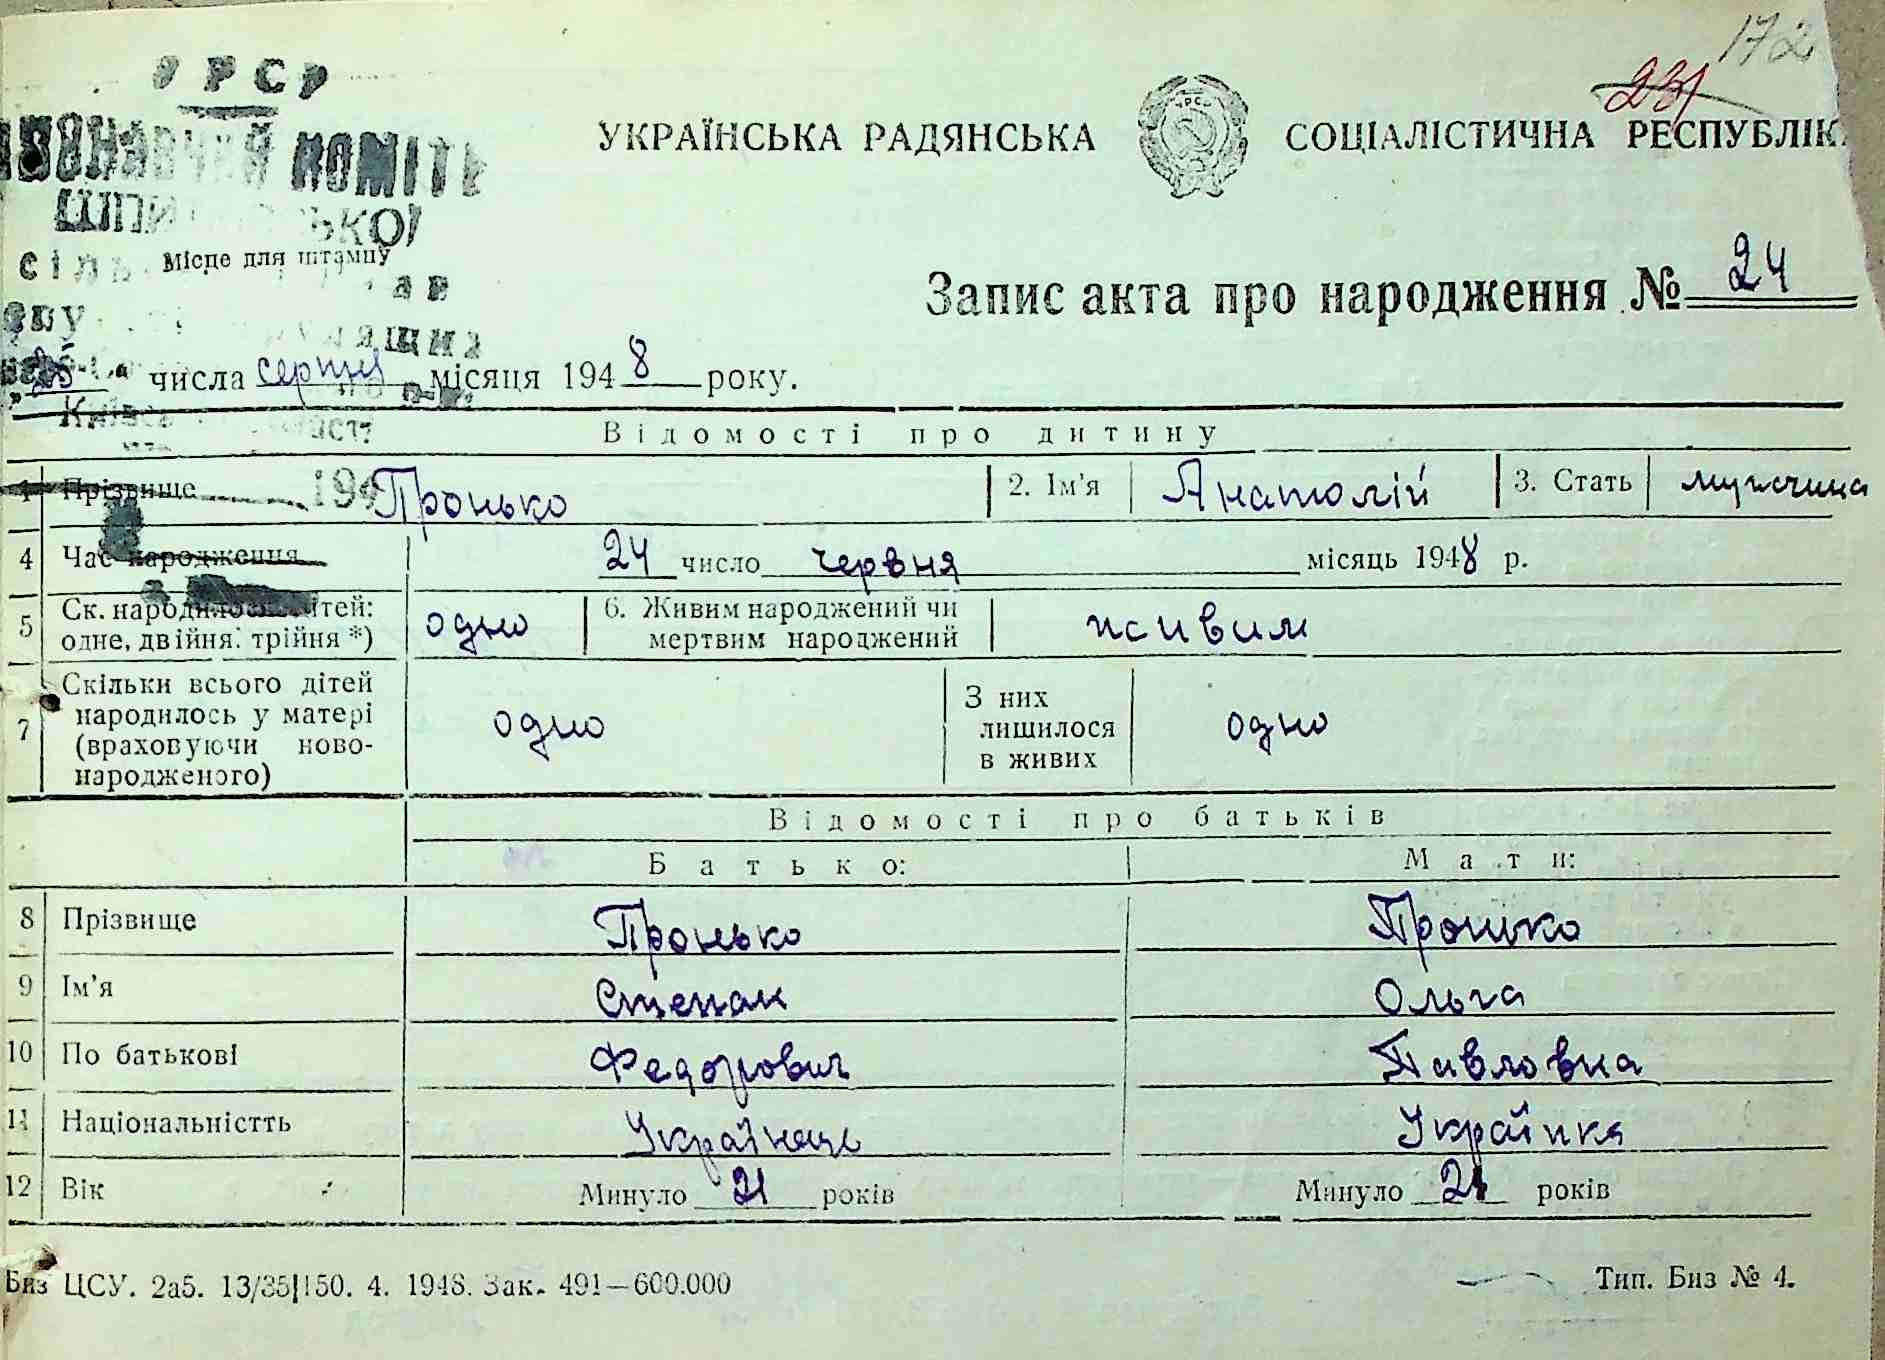 172
231
УРСР
КОМІТЕ
УКРАЇНСЬКА РАДЯНСЬКА СОЦІАЛІСТИЧНА РЕСПУБЛІК
Місце для штампу
Запис акта про народження № 24
25 числа серпня місяця 1948 року.
Відомості про дитину
1 Прізвище Пронько 2. Ім'я Анатолій 3. Стать мужчина
4 Час народження 24 число червня місяць 1948 р.
5 Ск. народилось дітей: одне, двійня, трійня *) одно 6. Живим народжений чи мертвим народжений живим
7 Скільки всього дітей народилось у матері (враховуючи ново-народженого) одно З них лишилося в живих одно
Відомості про батьків
Батько: Мати:
8 Прізвище Пронько Пронько
9 Ім'я Степан Ольга
10 По батькові Федорович Павловна
11 Національністть Українець Українка
12 Вік Минуло 21 років Минуло 21 років
Биз ЦСУ. 2а5. 13/35|150. 4. 1948. Зак. 491—600.000 Тип. Биз № 4.